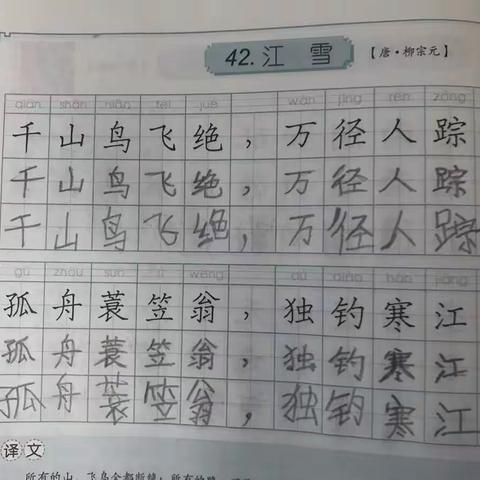 42.江 雪 【唐·柳宗元】
qiān shān niǎo fēi jué wàn jìng rén zōng
千山鸟飞绝，万径人踪
千山鸟飞绝，万径人踪
千山鸟飞绝，万径人踪
gū zhōu suō lì wēng dú diào hán jiāng
孤舟蓑笠翁，独钓寒江
孤舟蓑笠翁，独钓寒江
孤舟蓑笠翁，独钓寒江
译文
所有的山，飞鸟全都断绝；所有的路，